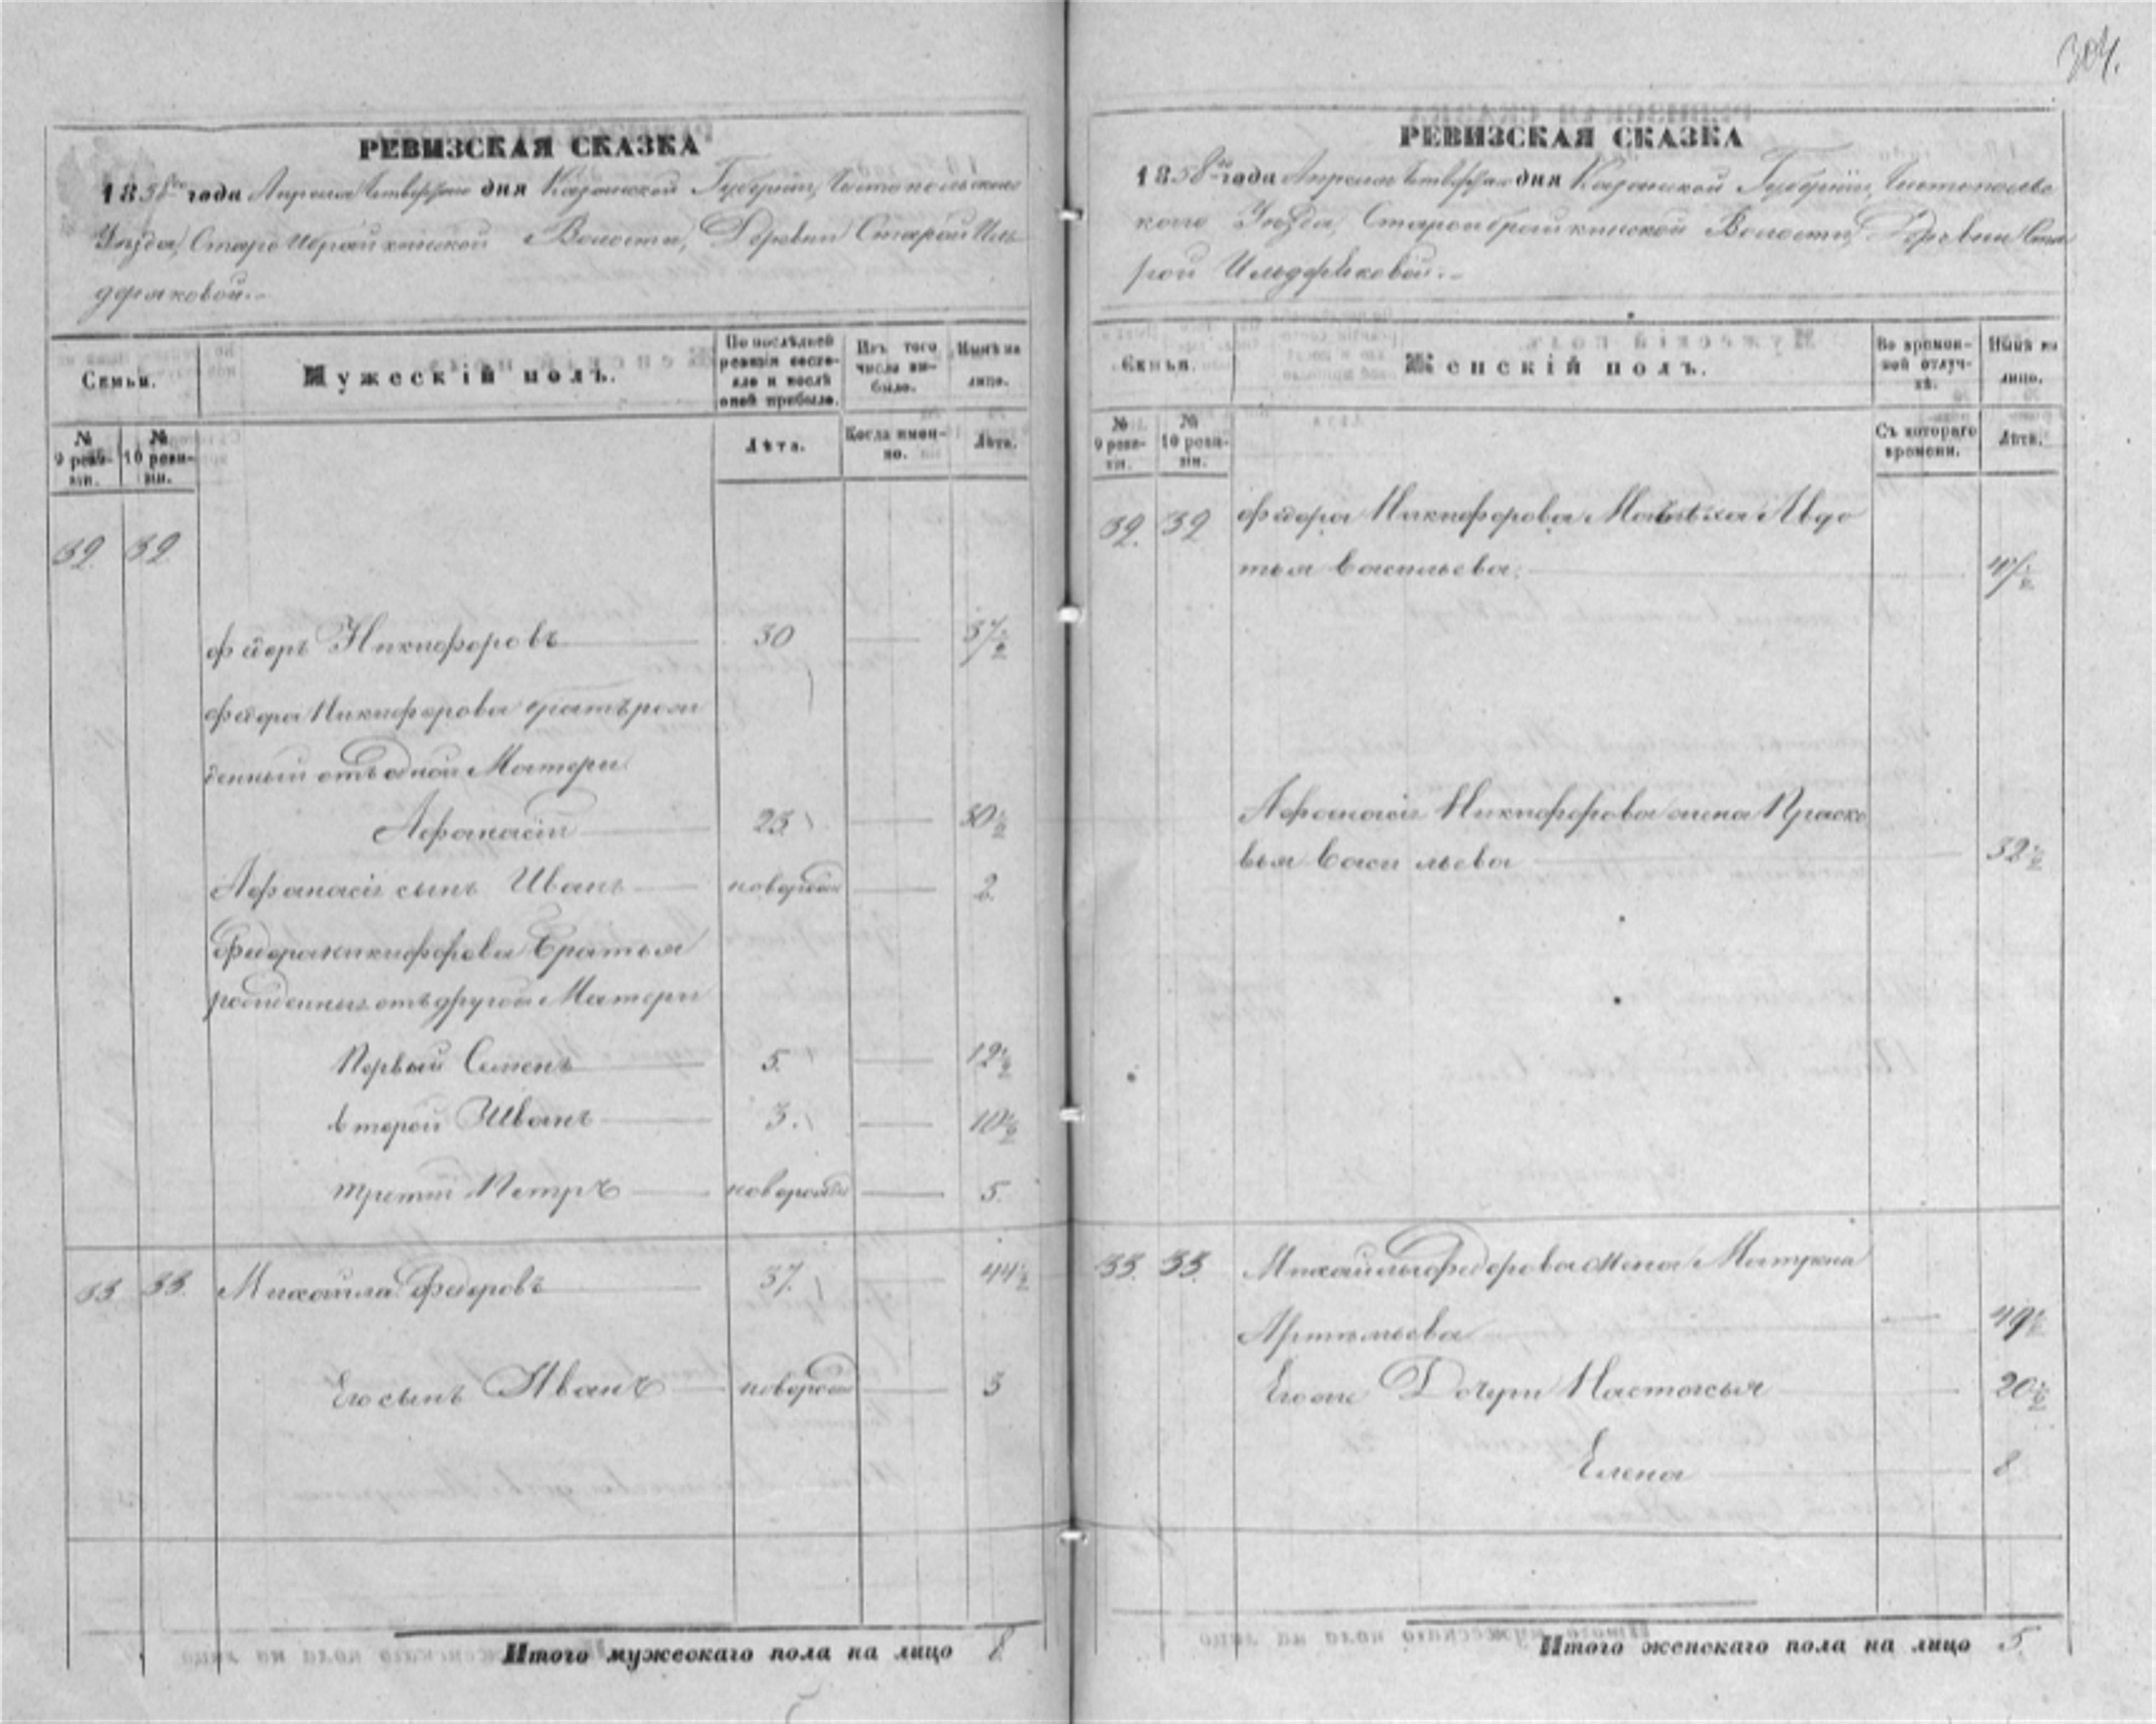 304.
РЕВИЗСКАЯ СКАЗКА
1858го года Апреля Четвертаго дня Казанской Губернiи, Чистопольскаго
Уѣзда, Староибрайкинской Волости, Деревни Старой Иль
дряковой.-
Семьи.
Мужескiй полъ.
По послѣдней
ревизiи состо-
яло и послѣ
оной прибыло.
Изъ того
числа вы-
было.
Нынѣ на
лицо.
№
9 реви-
зiи.
№
10 реви-
зiи.
Лѣта.
Когда имен-
но.
Лѣта.
32 32
Федоръ Никифоровъ 30 37 1/2
Федора Никифорова братъ рож
денный отъ одной Матери
Афанасiй 23 30 1/2
Афанасiя сынъ Иванъ новорожд 2.
Федора Никифорова Братья
рожденныя отъ другой Матери
Первый Семенъ 5. 12 1/2
второй Иванъ 3. 10 1/2
третiй Петръ новорожд 5.
33 33. Михайла Федоровъ 37. 44 1/2
Его сынъ Иванъ новорожд 3
Итого мужескаго пола на лицо 8
РЕВИЗСКАЯ СКАЗКА
1858го года Апреля Четвертаго дня Казанской Губернiи, Чистопольс
каго Уѣзда, Староибрайкинской Волости, Деревни Ста
рой Ильдряковой.-
Семьи.
Женскiй полъ.
Во времен-
ной отлуч-
кѣ.
Нынѣ на
лицо.
№
9 реви-
зiи.
№
10 реви-
зiи.
Съ котораго
времени.
Лѣта.
32. 32 Федора Никифорова Мачиха Авдо
тья Васильева.
Афанасiя Никифорова жена Праско
вья Васильева 32 1/2
33. 33. Михайлы Федорова жена Матрена
Артемьева 49 1/2
Его же Дочери Настасья 20 1/2
Елена 8
Итого женскаго пола на лицо 5.